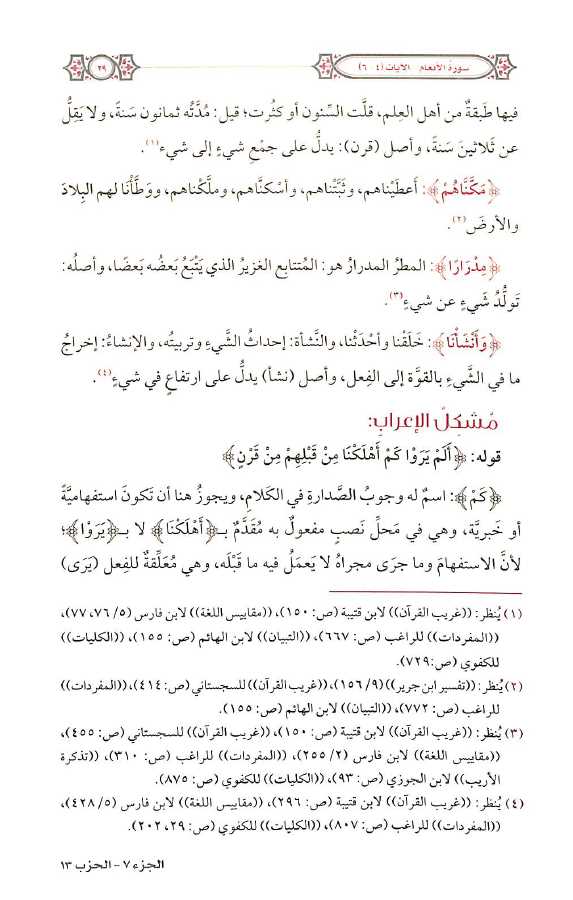 سورة الأنعام الآيات (٤ - ٦)
٢٩
فيها طَبقةٌ من أهل العِلم، قلَّت السِّنون أو كثُرت؛ قيل: مُدَّتُه ثمانون سَنةً، ولا يَقِلُّ
عن ثَلاثينَ سَنةً، وأصل (قرن): يدلُّ على جمْعِ شيءٍ إلى شيء(١).
﴿مَكَّنَّاهُمْ﴾: أَعطَيْناهم، وثَبَّتْناهم، وأسْكنَّاهم، وملَّكْناهم، ووَطَّأْنا لهم البِلادَ
والأرضَ(٢).
﴿مِدْرَارًا﴾: المطرُ المدرارُ هو: المُتتابع الغزيرُ الذي يَتْبَعُ بَعضُه بَعضًا، وأصلُه:
تَولُّدُ شَيءٍ عن شيءٍ(٣).
﴿وَأَنْشَأْنَا﴾: خَلَقْنا وأحْدَثْنا، والنَّشأة: إحداثُ الشَّيءِ وتربيتُه، والإنشاءُ: إخراجُ
ما في الشَّيءِ بالقوَّة إلى الفِعل، وأصل (نشأ) يدلُّ على ارتفاعٍ في شيءٍ(٤).
مُشكِلُ الإعرابِ:
قوله: ﴿أَلَمْ يَرَوْا كَمْ أَهْلَكْنَا مِنْ قَبْلِهِمْ مِنْ قَرْنٍ﴾
﴿كَمْ﴾: اسمٌ له وجوبُ الصَّدارةِ في الكلامِ، ويجوزُ هنا أن تكونَ استفهاميَّةً
أو خبريَّة، وهي في مَحلِّ نَصبٍ مفعولٌ به مُقدَّمٌ بـ﴿أَهْلَكْنَا﴾ لا بـ﴿يَرَوْا﴾؛
لأنَّ الاستفهامَ وما جرَى مجراهُ لا يَعمَلُ فيه ما قَبْلَه، وهي مُعلِّقةٌ للفعل (يَرَى)
(١) يُنظر: ((غريب القرآن)) لابن قتيبة (ص: ١٥٠)، ((مقاييس اللغة)) لابن فارس (٥/ ٧٦، ٧٧)،
((المفردات)) للراغب (ص: ٦٦٧)، ((التبيان)) لابن الهائم (ص: ١٥٥)، ((الكليات))
للكفوي (ص:٧٢٩).
(٢) يُنظر: ((تفسير ابن جرير)) (٩/ ١٥٦)، ((غريب القرآن)) للسجستاني (ص: ٤١٤)، ((المفردات))
للراغب (ص: ٧٧٢)، ((التبيان)) لابن الهائم (ص: ١٥٥).
(٣) يُنظر: ((غريب القرآن)) لابن قتيبة (ص: ١٥٠)، ((غريب القرآن)) للسجستاني (ص: ٤٥٥)،
((مقاييس اللغة)) لابن فارس (٢/ ٢٥٥)، ((المفردات)) للراغب (ص: ٣١٠)، ((تذكرة
الأريب)) لابن الجوزي (ص: ٩٣)، ((الكليات)) للكفوي (ص: ٨٧٥).
(٤) يُنظر: ((غريب القرآن)) لابن قتيبة (ص: ٢٩٦)، ((مقاييس اللغة)) لابن فارس (٥/ ٤٢٨)،
((المفردات)) للراغب (ص: ٨٠٧)، ((الكليات)) للكفوي (ص: ٢٩، ٢٠٢).
الجزء ٧ - الحزب ١٣